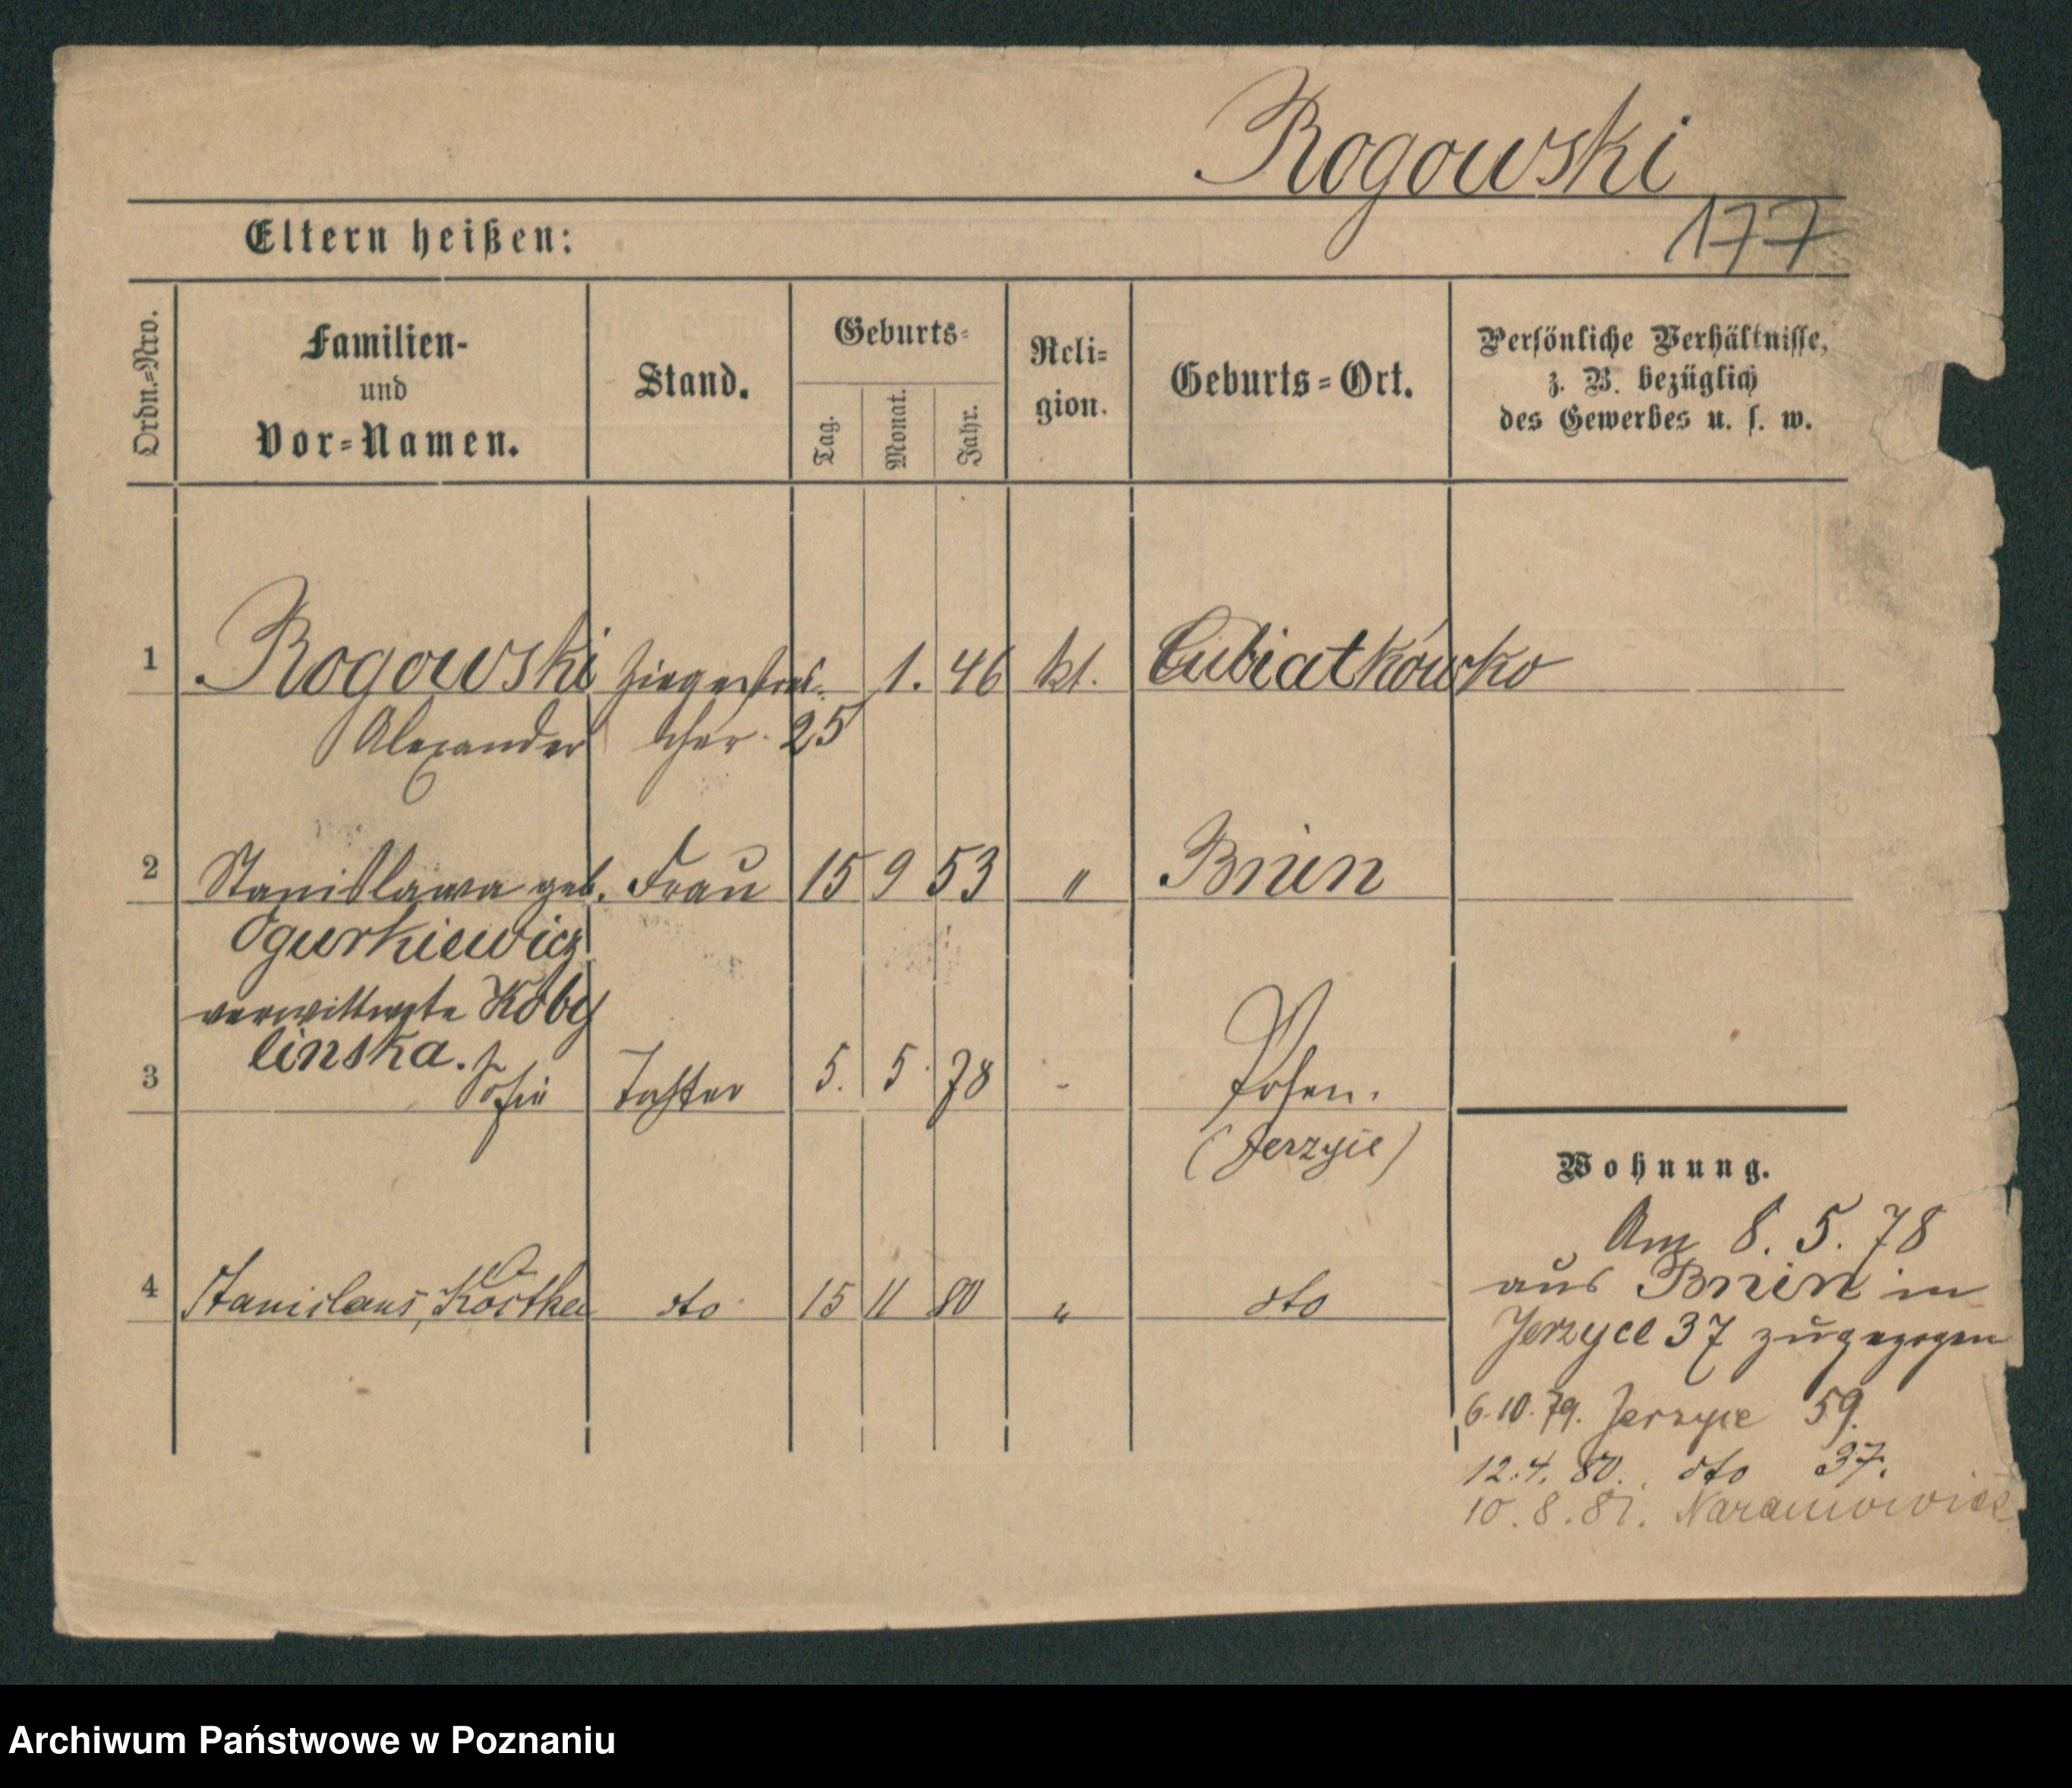 Rogowski
177
Eltern heißen:
Ordn.=Nro.
Familien- und Vor=Namen.
Stand.
Geburts=
Tag.
Monat.
Jahr.
Reli=
gion.
Geburts=Ort.
Persönliche Verhältnisse,
z. B. bezüglich
des Gewerbes u. s. w.
1 Rogowski 1. 46 kt. Lubiatkówko
Alexander cher 25
2 Stanislawa geb. Frau 15 9 53 " Bnin
Ogurkiewicz
verwittwete Koby
linska.
3 Sofie Tochter 5. 5. 78 - Posen.
(Jerzyce)
4 Stanislaus, Kostka dto 15 11 80 " dto
Wohnung.
Am 8. 5. 78
aus Bnin in
Jerzyce 37 zugezogen
6.10.79. Jerzyce 59.
12.4.80. dto 37.
10.8.81. Naramowice
Archiwum Państwowe w Poznaniu